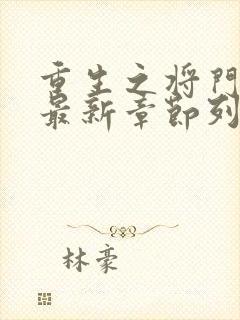 重生之将门
最新章节列
林豪